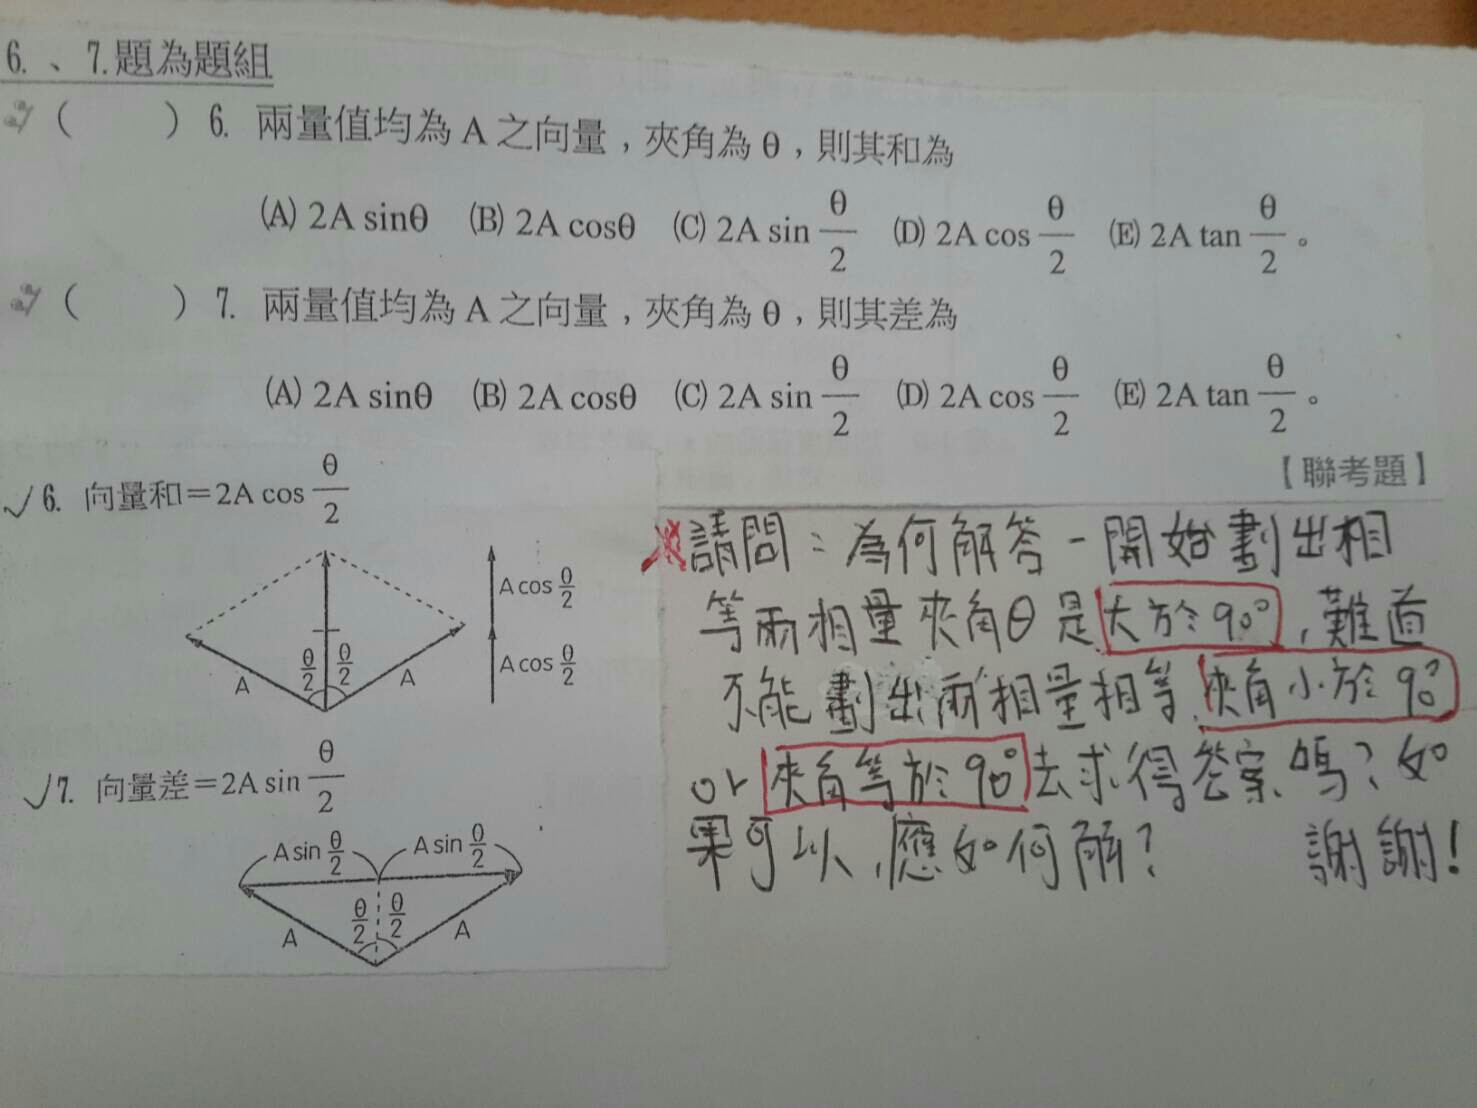 6.、7.題為題組
( ) 6. 兩量值均為 A 之向量，夾角為 θ，則其和為
(A) 2A sinθ (B) 2A cosθ (C) 2A sin θ/2 (D) 2A cos θ/2 (E) 2A tan θ/2 。
( ) 7. 兩量值均為 A 之向量，夾角為 θ，則其差為
(A) 2A sinθ (B) 2A cosθ (C) 2A sin θ/2 (D) 2A cos θ/2 (E) 2A tan θ/2 。
【聯考題】
✓6. 向量和＝2A cos θ/2
A cos θ/2
A cos θ/2
θ/2 θ/2
A A
✓7. 向量差＝2A sin θ/2
A sin θ/2 A sin θ/2
θ/2 θ/2
A A
※請問：為何解答一開始劃出相
等兩相量夾角θ是大於90°，難道
不能劃出兩相量相等，夾角小於90°
or 夾角等於90°去求得答案嗎？如
果可以，應如何解？ 謝謝！